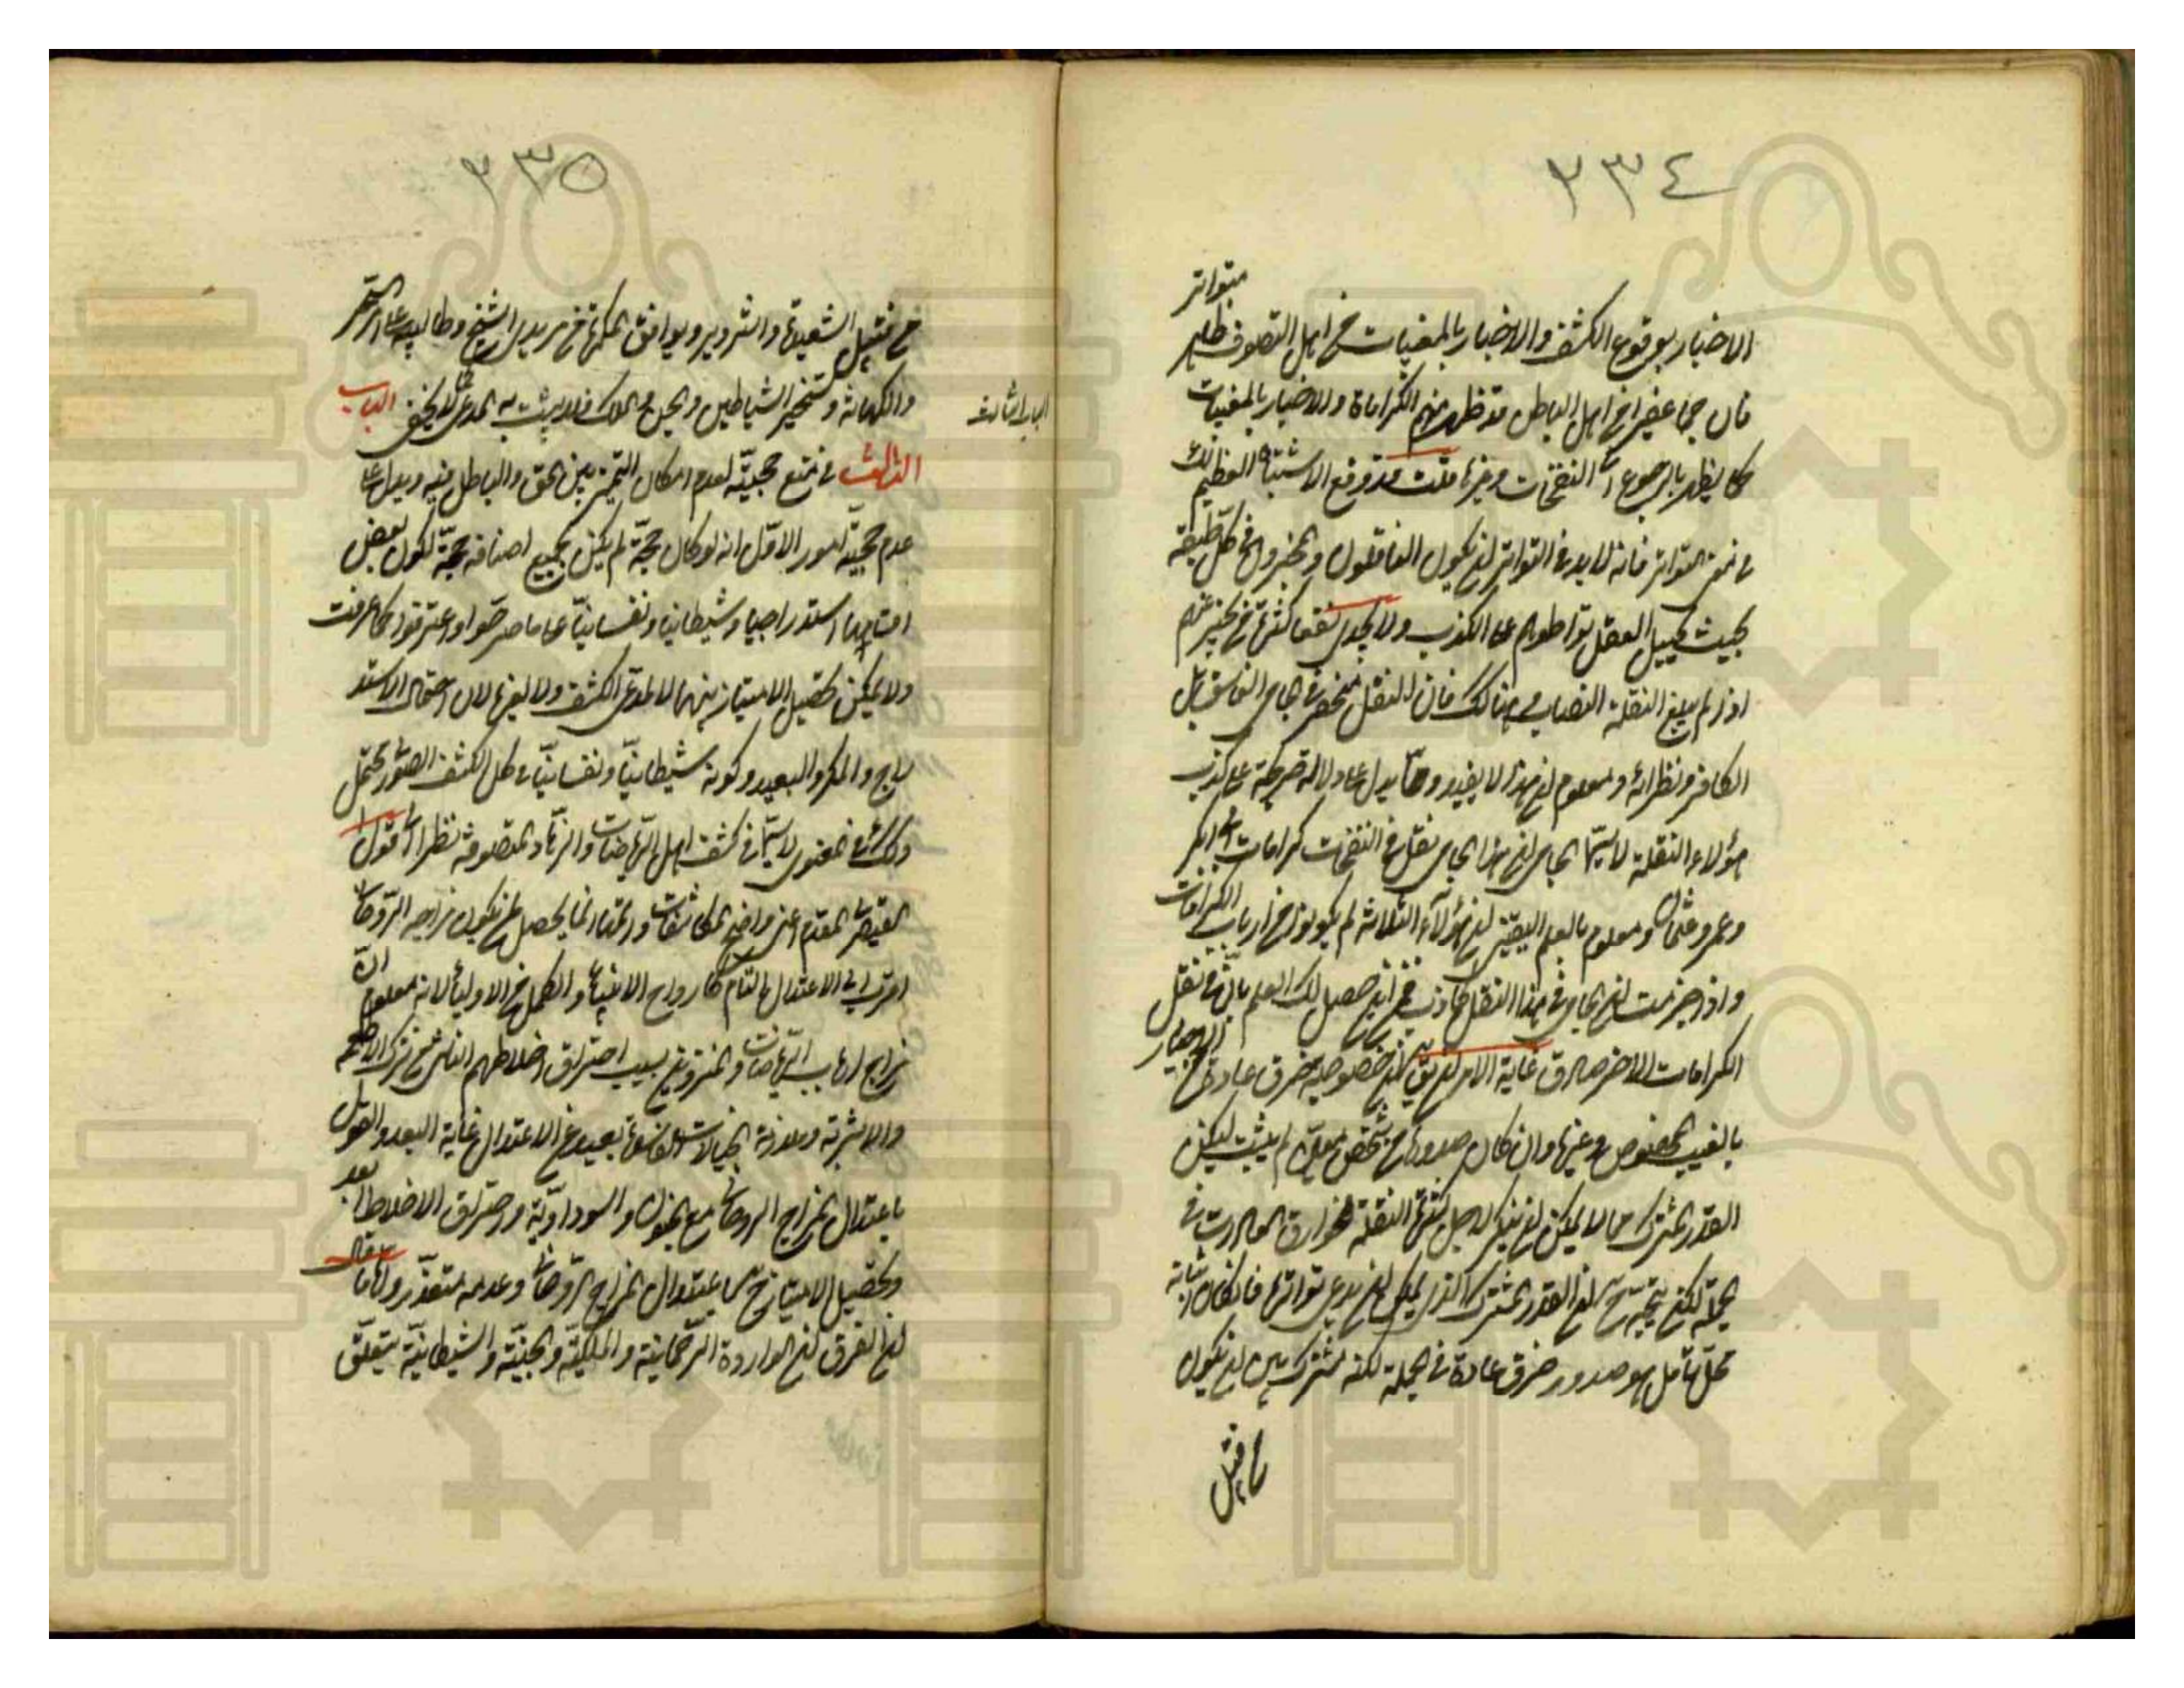 ٢٣٤
متواتر
الاخبار بوقوع الكشف والاخبار بالمغيبات من اهل التصوف ظاهر
فان جما غفيرا من اهل الباطل قد ظهر منهم الكرامات والاخبار بالمغيبات
كما يظهر بالرجوع الى النفحات وغيرها قلت قد وقع الاشتباه العظيم لك
في معنى التواتر فانه لا بد في التواتر ان يكون الناقلون والمخبرون في كل طبقة
بحيث يحيل العقل تواطؤهم على الكذب ولا يجدى نفعا كثرة من يخبر عنهم
اذا لم يبلغ النقلة النصاب هنالك فان النقل منحصر في الجامى الفاسق بل
الكافر ونظرائه ومعلوم ان هذا لا يفيد ومما يدل دلالة صريحة على كذب
هؤلاء النقلة لا سيما الجامى ان هذا الجامى نقل في النفحات كرامات ابى بكر
وعمر وعثمان ومعلوم بالعلم اليقين ان هؤلاء الثلاثة لم يكونوا من ارباب الكرامات
واذا جزمت ان الجامى في هذا النقل كاذب فمن اين حصل لك العلم بانه في نقل
الكرامات الاخر صادق غاية الامر ان خصوصية خرق عادة من الاخبار
بالغيب المخصوص وغيرها وان كان صدورها من شخص معين لم يثبت لكن
القدر المشترك مما لا يمكن ان ينكر لاجل كثرة النقلة لخوارق العادات في
الجملة لكن يتجه ح ان القدر المشترك الذى يمكن ان يدعى تواترها فانكان اثباته
محل تأمل هو صدور خرق عادة في الجملة لكنه مشترك بين ان يكون
من قبيل
٢٣٥
من قبيل الشعبذة والتزوير وتوافق المكر من مريدى الشيخ وطالبيه على السحر
والكهانة وتسخير الشياطين والجن والملك فلا يثبت به المدعى كما لا يخفى الباب
الباب الثالث
الثالث في منع حجيته لعدم امكان التميز بين الحق والباطل فيه ويدل على
عدم حجيته امور الاول انه لو كان حجة لم يكن بجميع اصنافه حجة لكون بعض
اقسامها استدراجيا وشيطانيا ونفسانيا على ما صرحوا واعترفوا كما عرفت
ولا يمكن تحصيل الامتياز بينهما لا لمدعى الكشف ولا لغيره لان احتمال الاستد
راج والمكر والبعيد وكونه شيطانيا ونفسانيا في كل الكشف الصورى محتمل
وكذا في المعنوى لا سيما في كشف اهل الرياضات والزهاد المتصوفة نظرا الى قول
القيصرى المقدم اعنى واضح المكاشفات واتمها انما يحصل لمن يكون مزاجه الروحانى
اقرب الى الاعتدال التام كارواح الانبياء والكمل من الاولياء لانه معلوم ان
مزاج ارباب الرياضات والمنزوين بسبب احتراق اخلاطهم الناشى من ترك الاطعمة
والاشربة وملازمة الخيالات الفاسدة بعيد عن الاعتدال غاية البعد والقول
باعتدال المزاج الروحانى مع الجنون والسوداوية واحتراق الاخلاط بعيد
وتحصيل الامتياز ح باعتدال المزاج الروحانى وعدمه متعذر واما ما قال
ان الفرق ان الواردة الرحمانية والملكية والجنية والشيطانية يتعلق